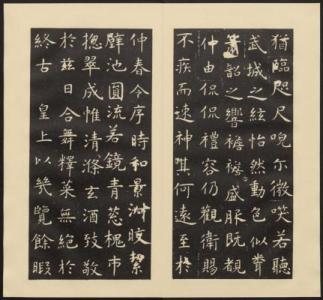 猶臨咫尺唍尔微笑若聽
武城之絃怡然動色似聞
簫韶之響襜襜盛服既覩
仲由侃侃禮容仍觀衛賜
不疾而速神其何遠至於
仲春令序時和景淑皎絜
璧池圓流若鏡青葱槐市
揔翠成帷清滌玄酒致敬
於兹日合舞釋菜無絕於
終古 皇上以幾覽餘暇